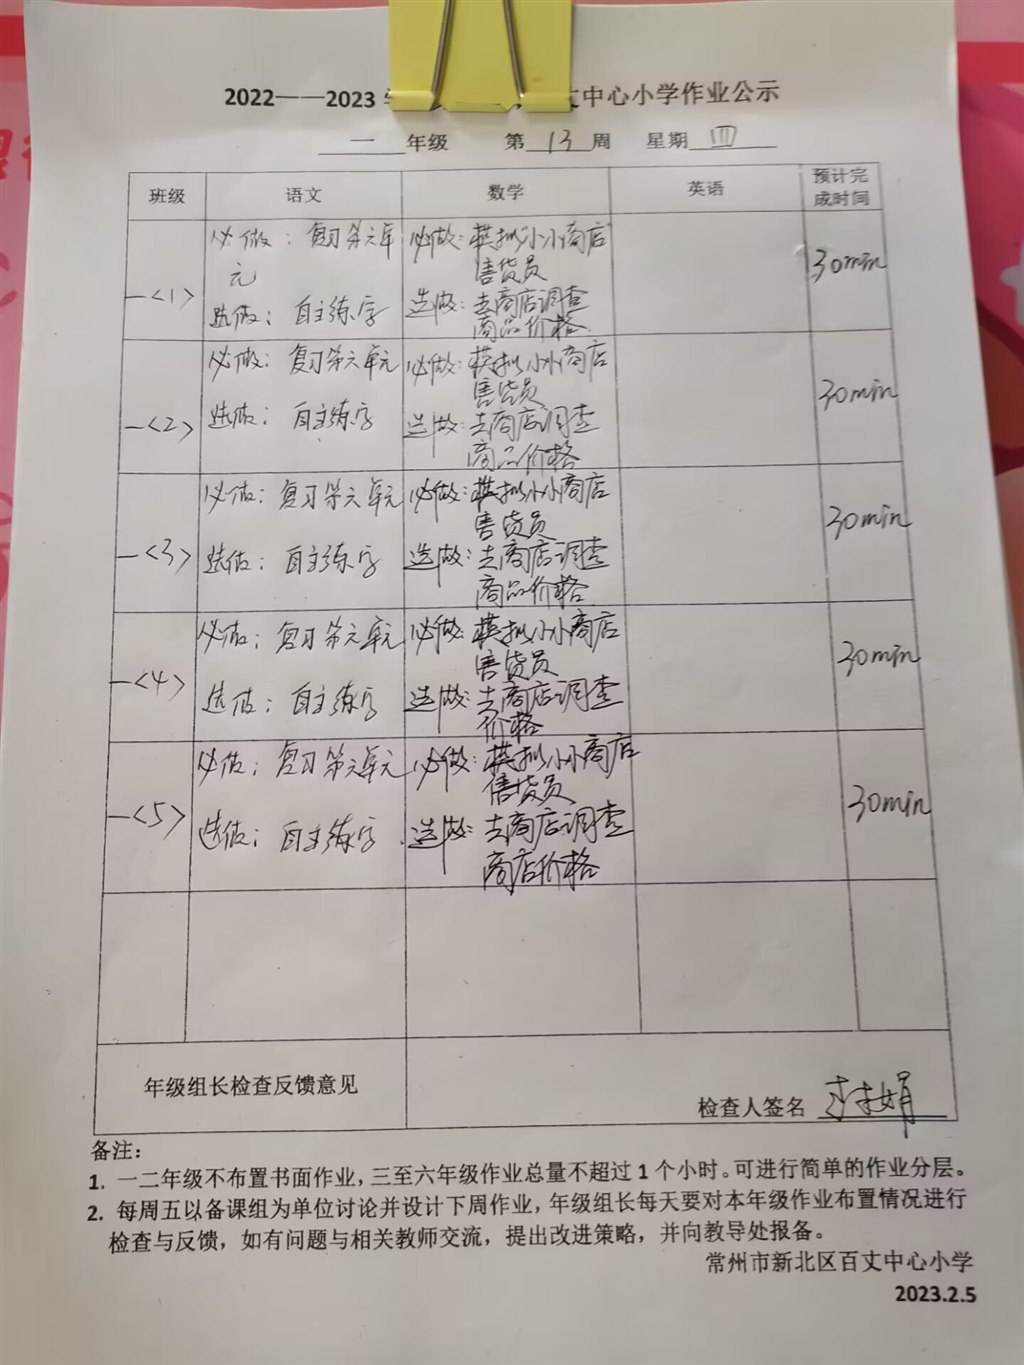 2022——2023 学 丈中心小学作业公示
一 年级 第 13 周 星期 四
班级 语文 数学 英语 预计完
成时间
一<1> 必做：复习第六单
元
选做：自主练字
必做：模拟小小商店
售货员
选做：去商店调查
商品价格
30min
一<2> 必做：复习第六单元
选做：自主练字
必做：模拟小小商店
售货员
选做：去商店调查
商品价格
30min
一<3> 必做：复习第六单元
选做：自主练字
必做：模拟小小商店
售货员
选做：去商店调查
商品价格
30min
一<4> 必做：复习第六单元
选做：自主练字
必做：模拟小小商店
售货员
选做：去商店调查
价格
30min
一<5> 必做：复习第六单元
选做：自主练字
必做：模拟小小商店
售货员
选做：去商店调查
商店价格
30min
年级组长检查反馈意见
检查人签名
备注：
1. 一二年级不布置书面作业，三至六年级作业总量不超过 1 个小时。可进行简单的作业分层。
2. 每周五以备课组为单位讨论并设计下周作业，年级组长每天要对本年级作业布置情况进行
检查与反馈，如有问题与相关教师交流，提出改进策略，并向教导处报备。
常州市新北区百丈中心小学
2023.2.5